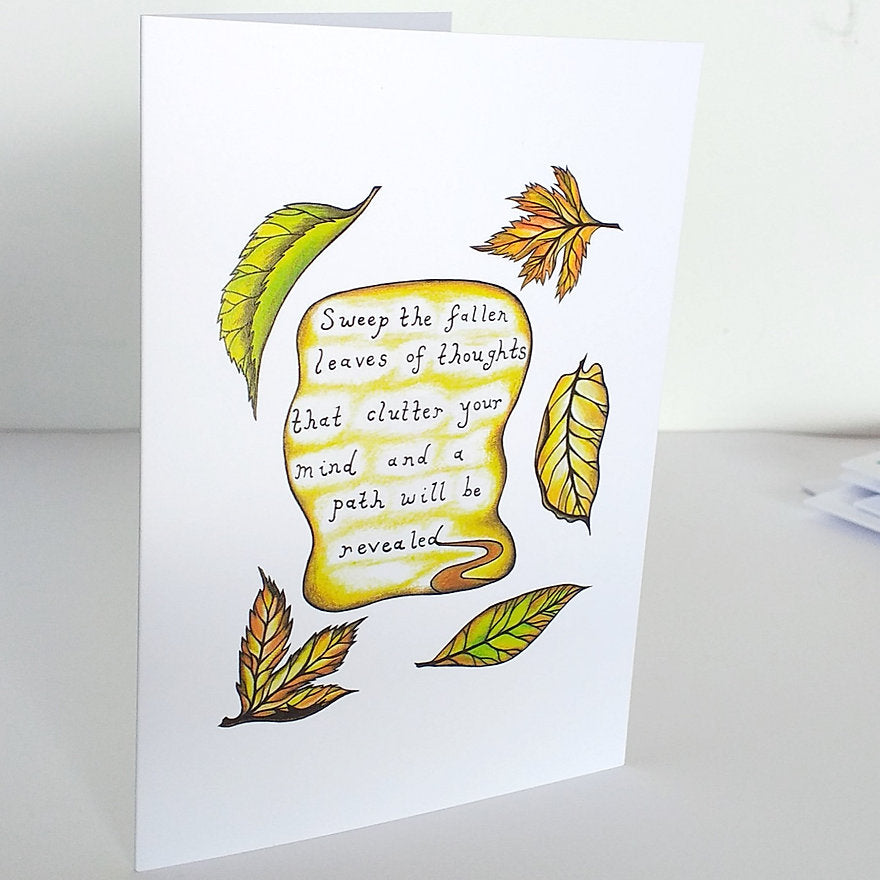 Sweep the fallen
leaves of thoughts
that clutter your
mind and a
path will be
revealed